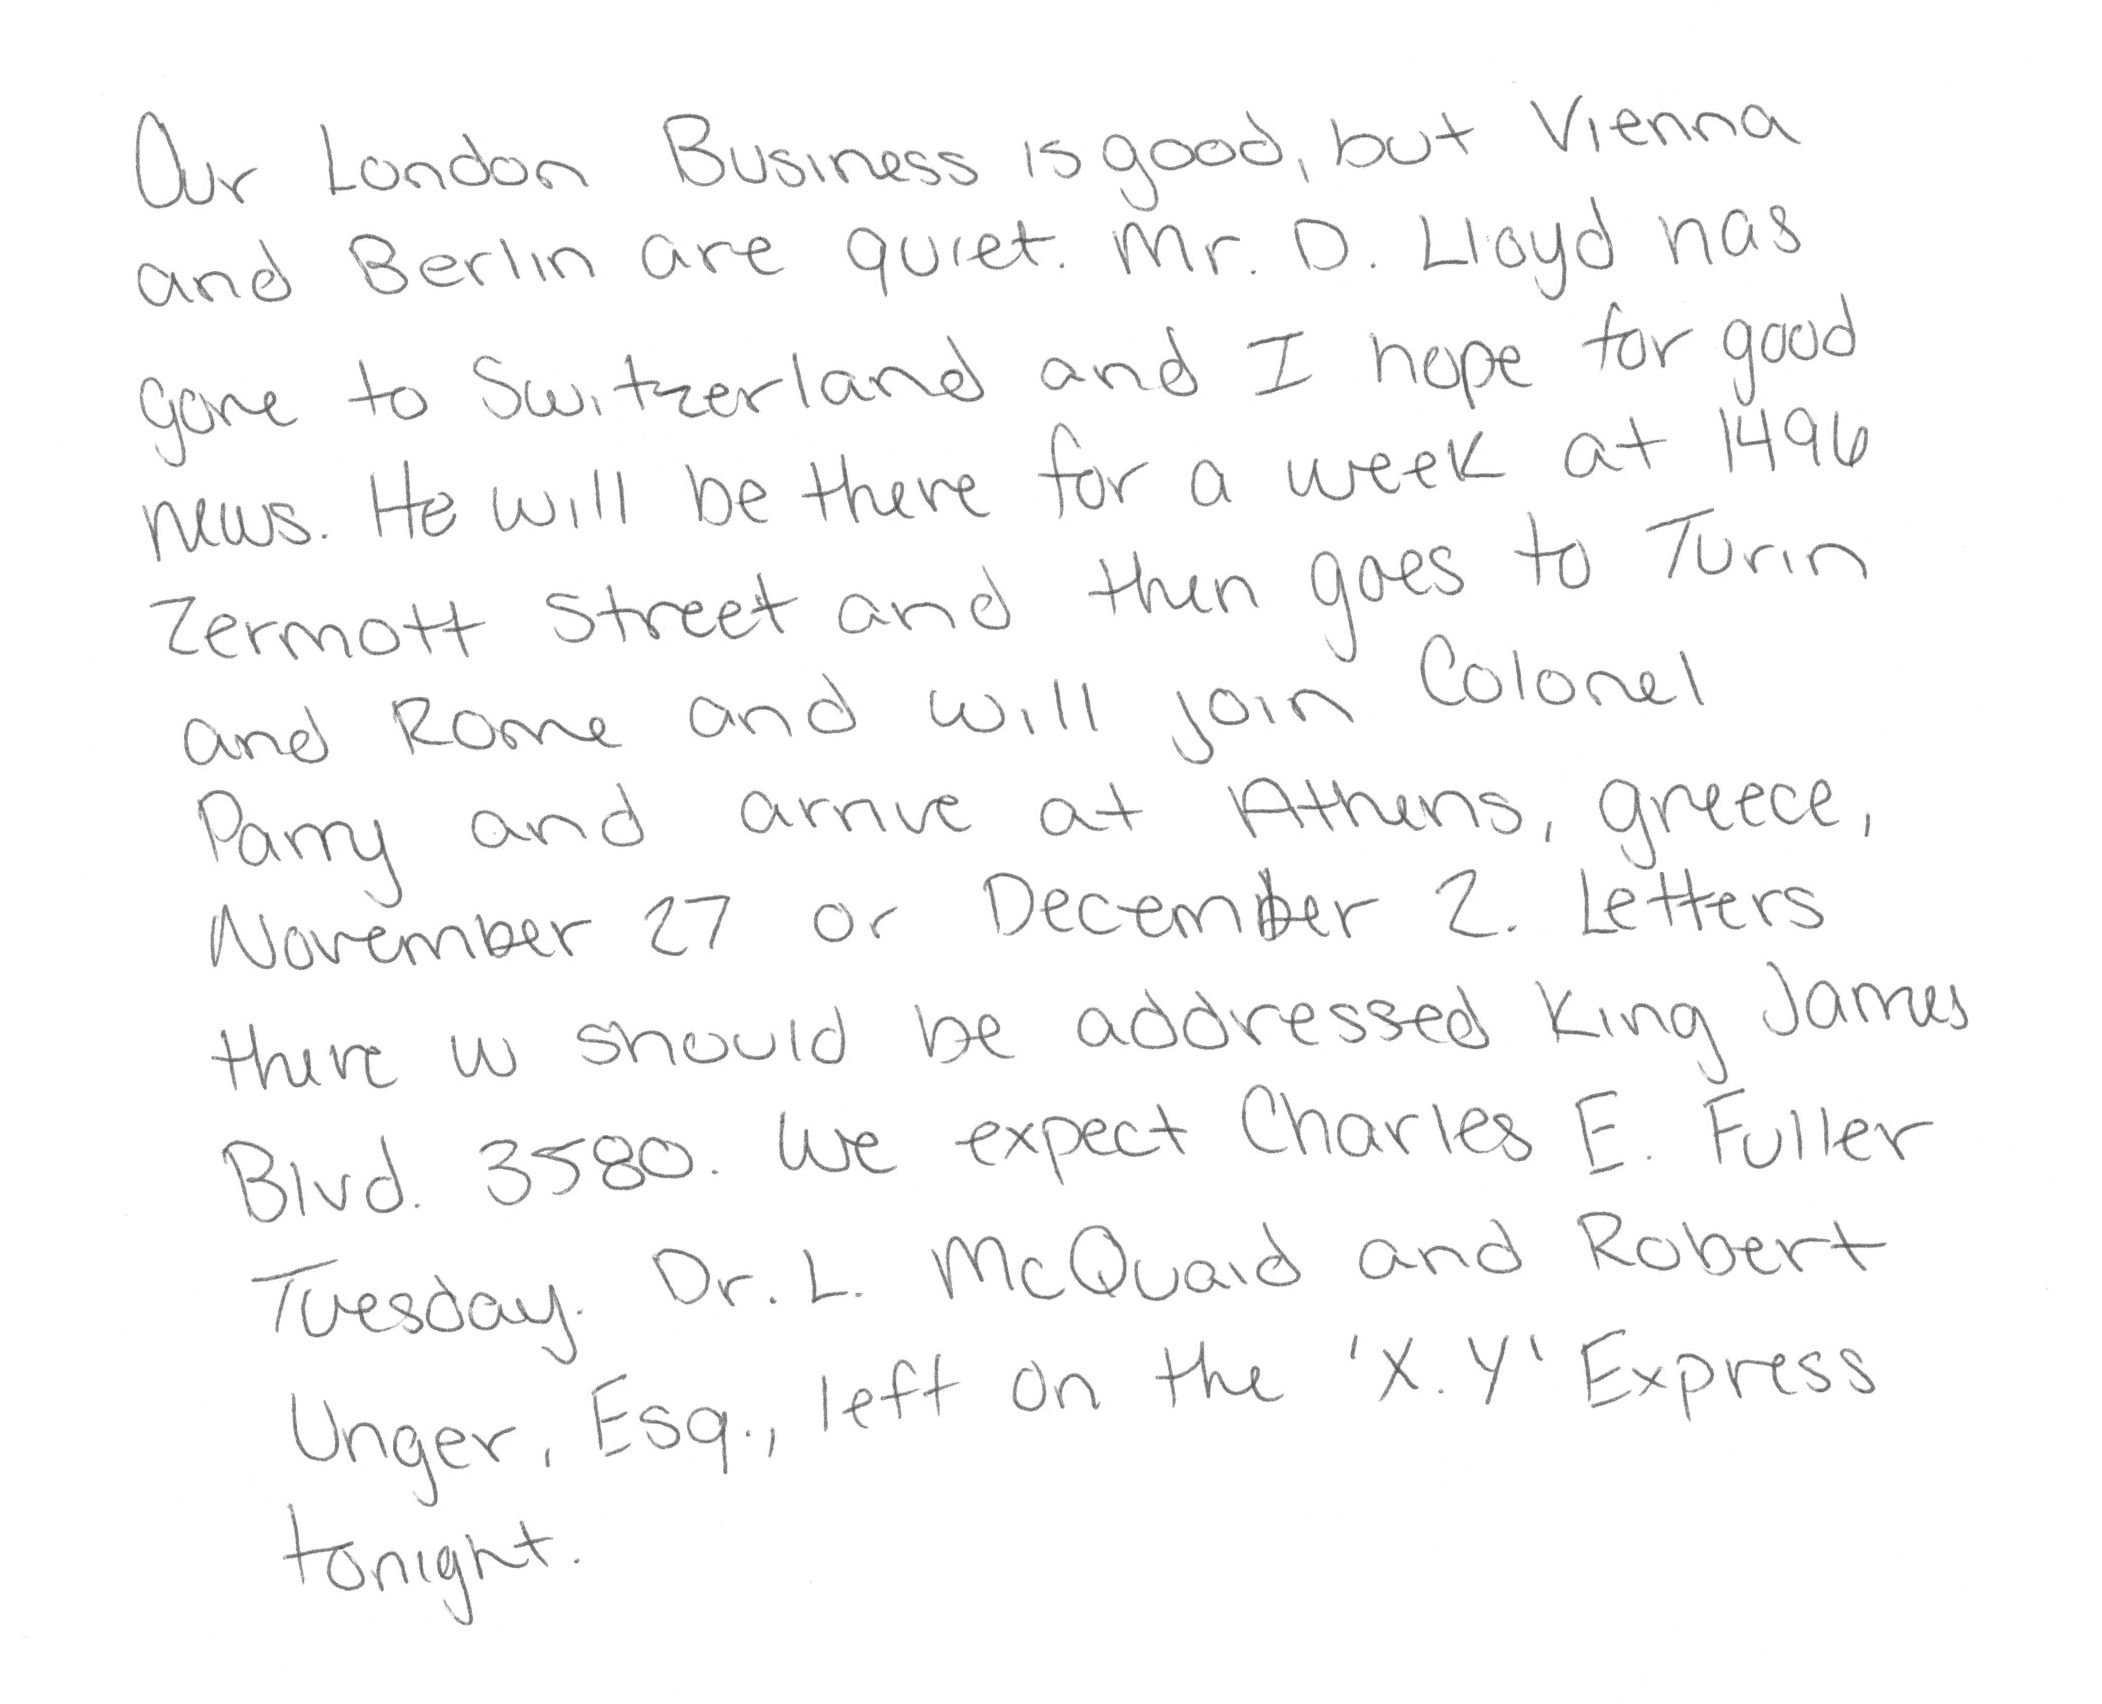 Our London Business is good, but Vienna
and Berlin are quiet. Mr. D. Lloyd has
gone to Switzerland and I hope for good
news. He will be there for a week at 1496
Zermott Street and then goes to Turin
and Rome and will join Colonel
Parry and arrive at Athens, Greece,
November 27 or December 2. Letters
there w should be addressed King James
Blvd. 3580. We expect Charles E. Fuller
Tuesday. Dr. L. McQuaid and Robert
Unger, Esq., left on the 'X.Y' Express
tonight.